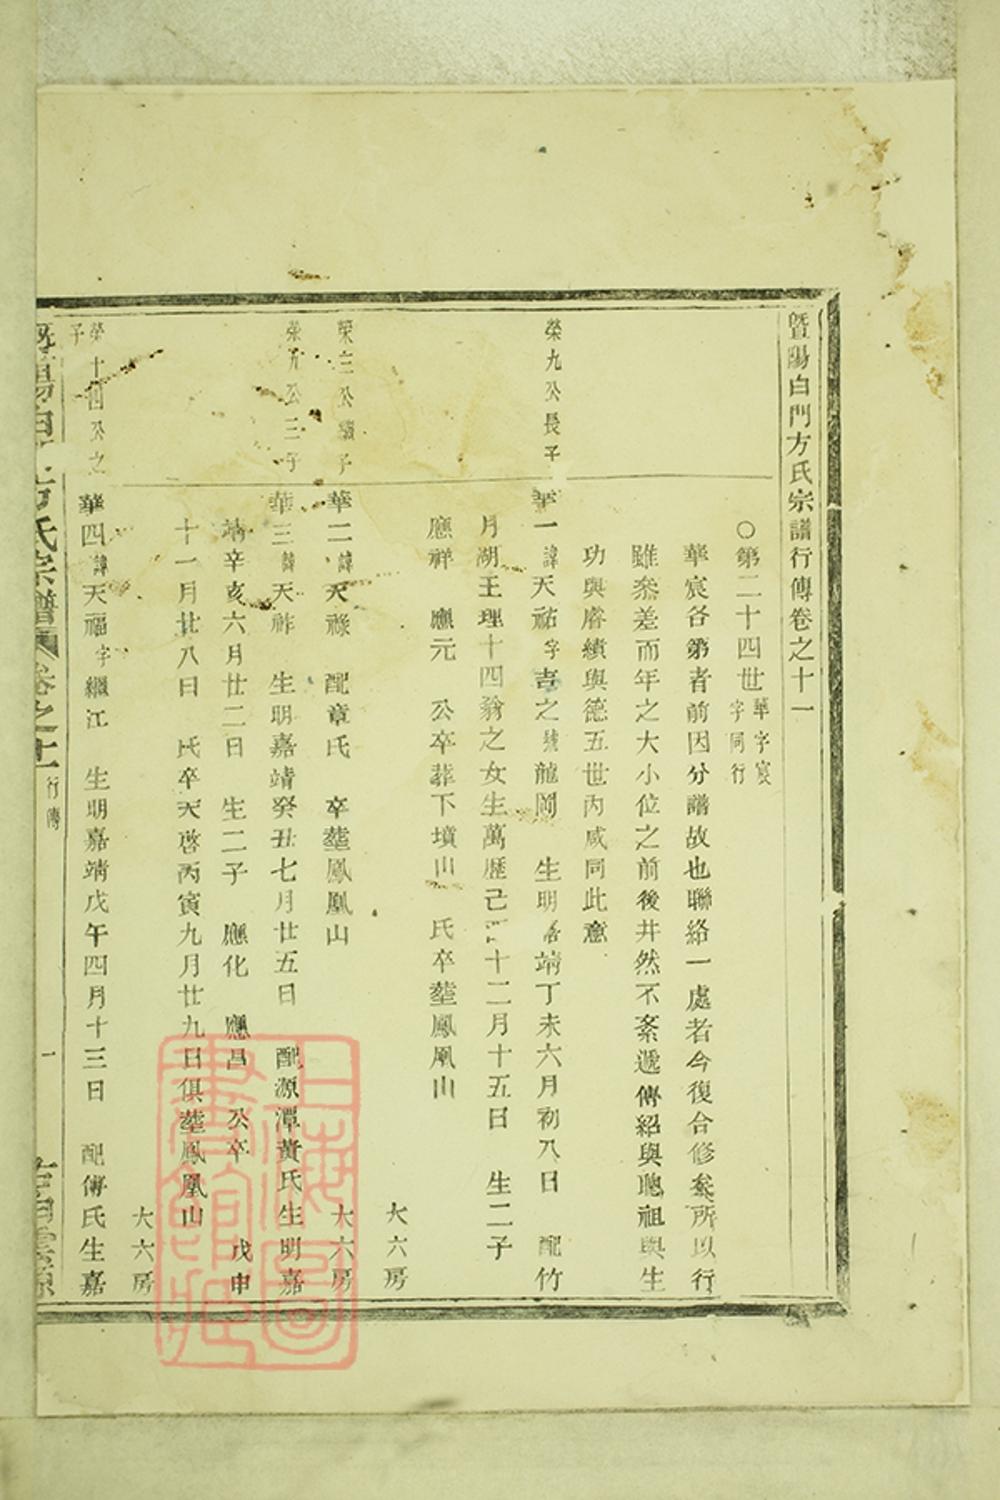 暨陽白門方氏宗譜行傳卷之十一
○第二十四世華字宸字同行
華宸各第者前因分譜故也聯絡一處者今復合修案所以行
雖叅差而年之大小位之前後井然不紊遞傳紹與聰祖與生
功與睿績與德五世內咸同此意
榮九公長子
華一諱天祐字吉之號龍岡 生明嘉靖丁未六月初八日 配竹
月湖王理十四翁之女生萬歷己 十二月十五日 生二子
應祥 應元 公卒葬下墳山 氏卒塟鳳凰山
大六房
榮 公 子
華二諱天祿 配章氏 卒塟鳳凰山
大六房
榮九公三子
華三諱天祚 生明嘉靖癸丑七月廿五日 配源潭黃氏生明嘉
靖辛亥六月廿二日 生二子 應化 應昌 公卒 戊申
十一月廿八日 氏卒天啓丙寅九月廿九日俱塟鳳凰山
大六房
榮十四公之子
華四諱天福字繼江 生明嘉靖戊午四月十三日 配傅氏生嘉
暨陽白門方氏宗譜 卷之十一 行傳 一
上海圖書館藏